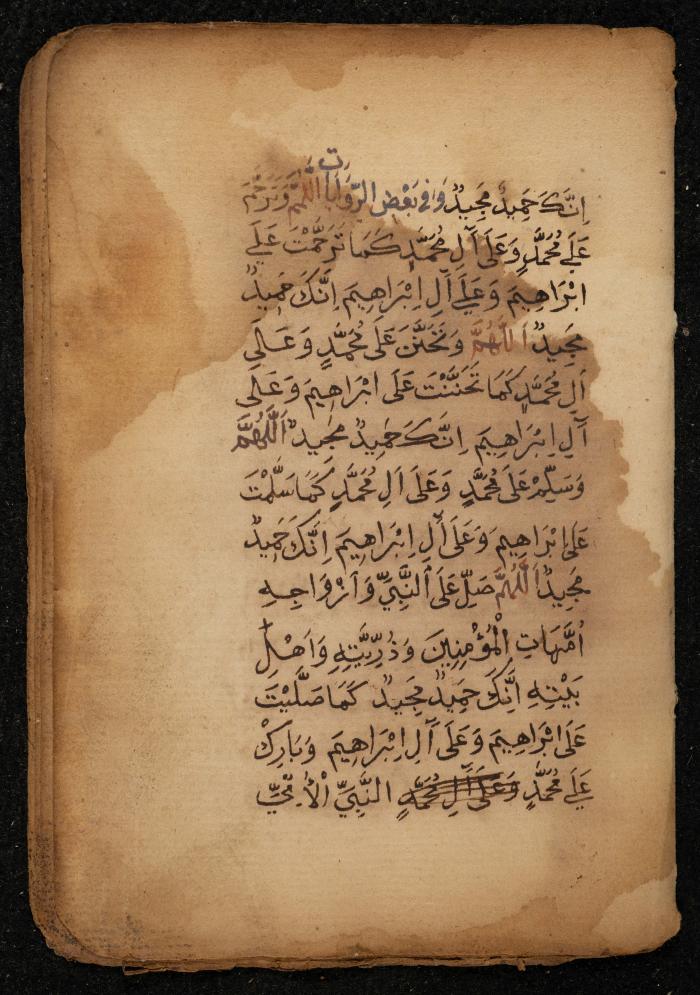 اِنَّكَ حَمِيدٌ مَجِيدٌ وَفِي بَعْضِ الرِّوَايَاتِ اَللّٰهُمَّ وَتَرَحَّمْ
عَلَى مُحَمَّدٍ وَعَلَى آلِ مُحَمَّدٍ كَمَا تَرَحَّمْتَ عَلَى
اِبْرَاهِيمَ وَعَلَى آلِ اِبْرَاهِيمَ اِنَّكَ حَمِيدٌ
مَجِيدٌ اَللّٰهُمَّ وَتَحَنَّنْ عَلَى مُحَمَّدٍ وَعَلَى
آلِ مُحَمَّدٍ كَمَا تَحَنَّنْتَ عَلَى اِبْرَاهِيمَ وَعَلَى
آلِ اِبْرَاهِيمَ اِنَّكَ حَمِيدٌ مَجِيدٌ اَللّٰهُمَّ
وَسَلِّمْ عَلَى مُحَمَّدٍ وَعَلَى آلِ مُحَمَّدٍ كَمَا سَلَّمْتَ
عَلَى اِبْرَاهِيمَ وَعَلَى آلِ اِبْرَاهِيمَ اِنَّكَ حَمِيدٌ
مَجِيدٌ اَللّٰهُمَّ صَلِّ عَلَى النَّبِيِّ وَاَزْوَاجِهِ
اُمَّهَاتِ الْمُؤْمِنِينَ وَذُرِّيَّتِهِ وَاَهْلِ
بَيْتِهِ اِنَّكَ حَمِيدٌ مَجِيدٌ كَمَا صَلَّيْتَ
عَلَى اِبْرَاهِيمَ وَعَلَى آلِ اِبْرَاهِيمَ وَبَارِكْ
عَلَى مُحَمَّدٍ وَعَلَى آلِ مُحَمَّدٍ النَّبِيِّ الْاُمِّيِّ